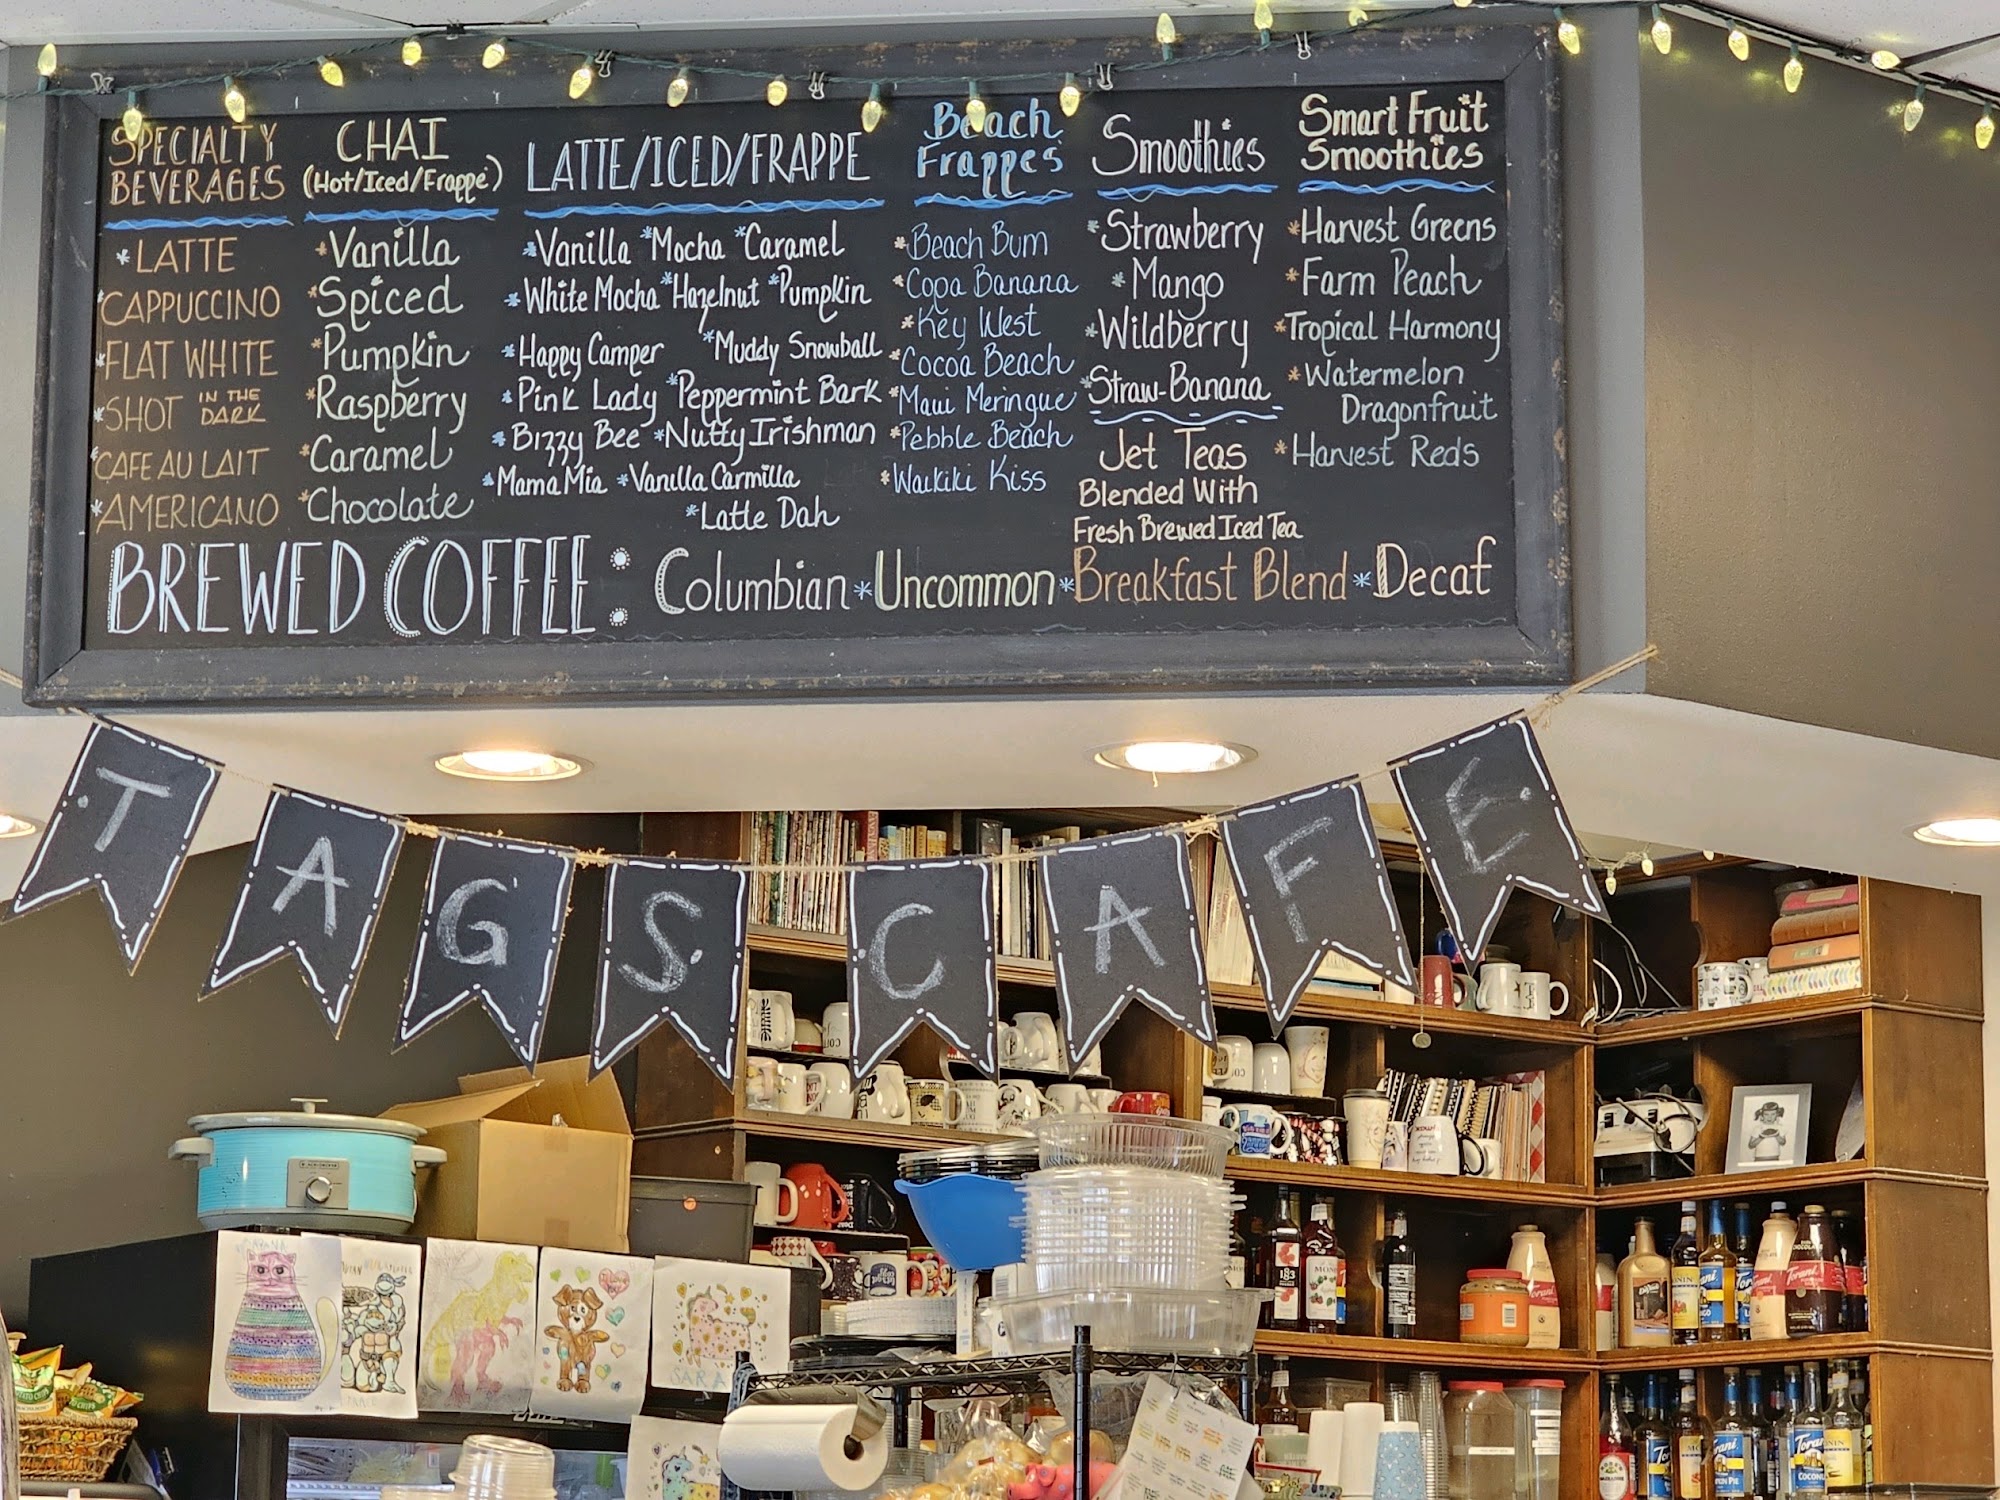 SPECIALTY
BEVERAGES
*LATTE
*CAPPUCCINO
*FLAT WHITE
*SHOT IN THE DARK
*CAFE AU LAIT
*AMERICANO
CHAI
(Hot/Iced/Frappe)
*Vanilla
*Spiced
*Pumpkin
*Raspberry
*Caramel
*Chocolate
LATTE/ICED/FRAPPE
*Vanilla *Mocha *Caramel
*White Mocha *Hazelnut *Pumpkin
*Happy Camper *Muddy Snowball
*Pink Lady *Peppermint Bark
*Bizzy Bee *Nutty Irishman
*Mama Mia *Vanilla Carmilla
*Latte Dah
Beach
Frappes
*Beach Bum
*Copa Banana
*Key West
*Cocoa Beach
*Maui Meringue
*Pebble Beach
*Waikiki Kiss
Smoothies
*Strawberry
*Mango
*Wildberry
*Straw-Banana
Jet Teas
Blended With
Fresh Brewed Iced Tea
Smart Fruit
Smoothies
*Harvest Greens
*Farm Peach
*Tropical Harmony
*Watermelon
Dragonfruit
*Harvest Reds
BREWED COFFEE: Columbian *Uncommon *Breakfast Blend *Decaf
TAGS CAFE
SARA
Torani
Torani
Torani
Torani